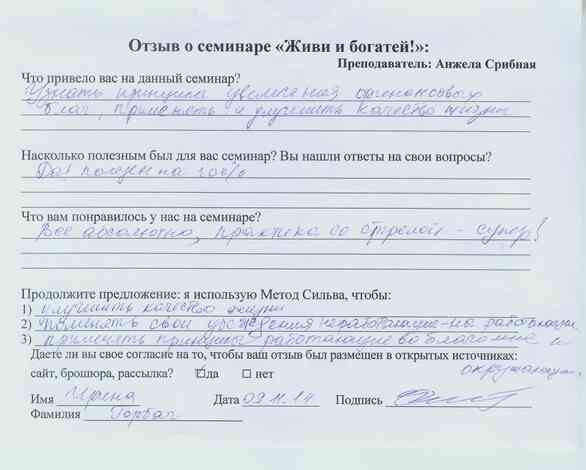 Отзыв о семинаре «Живи и богатей!»:
Преподаватель: Анжела Срибная
Что привело вас на данный семинар?
Узнать принципы увеличения финансовых
благ, применять и улучшить качество жизни
Насколько полезным был для вас семинар? Вы нашли ответы на свои вопросы?
Да! полезен на 100%
Что вам понравилось у нас на семинаре?
Все абсолютно, практика со стрелой - супер!
Продолжите предложение: я использую Метод Сильва, чтобы:
1) улучшить качество жизни
2) поменять свои убеждения неработающие - на работающие
3) применять принципы работающие во благо мне и
окружающим.
Даете ли вы свое согласие на то, чтобы ваш отзыв был размещен в открытых источниках:
сайт, брошюра, рассылка? да нет
Имя Ирина Дата 09.11.14 Подпись
Фамилия Горбач